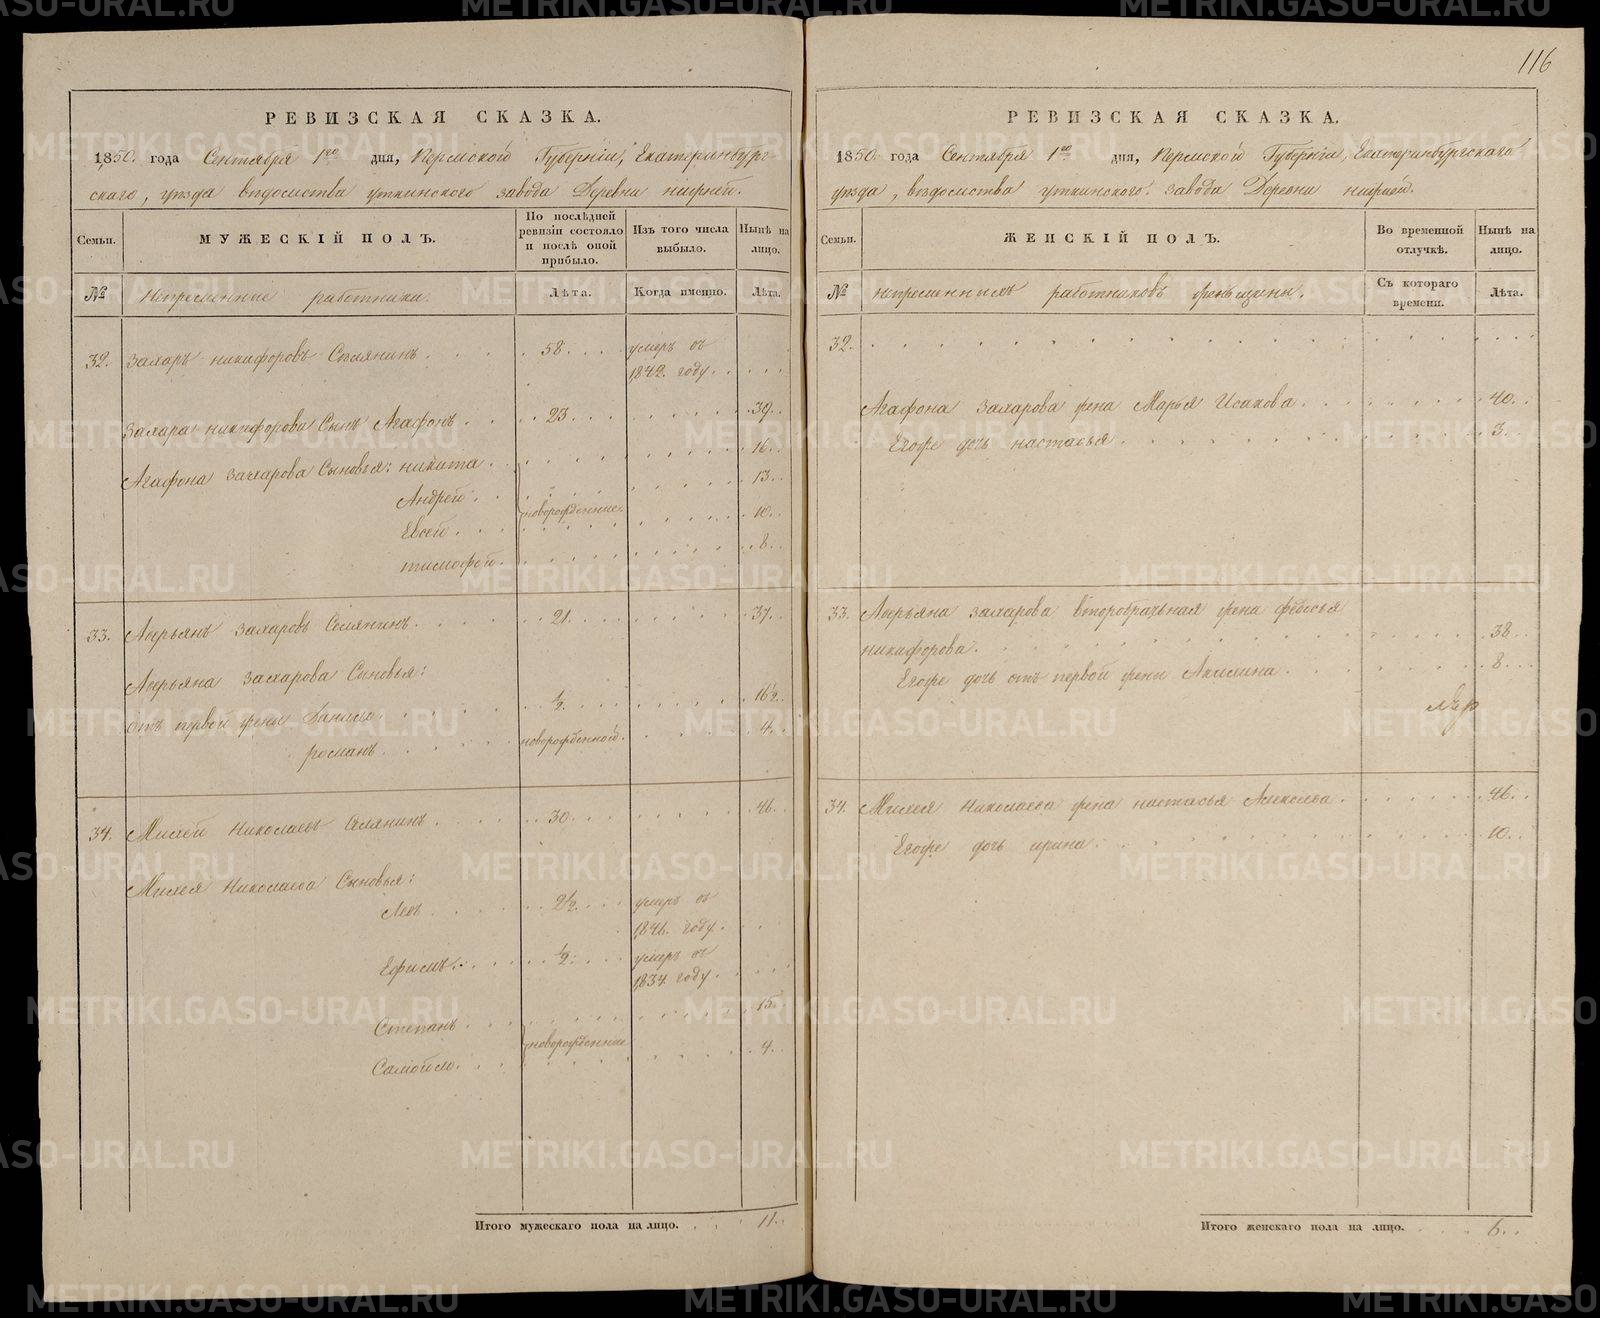 116
РЕВИЗСКАЯ СКАЗКА.
1850. года Сентября 1го дня, Пермской Губерніи, Екатеринбург-
скаго, уезда ведомства уткинского завода Деревни нижней.
Семьи.
МУЖЕСКІЙ ПОЛЪ.
По послѣдней ревизіи состояло и послѣ оной прибыло.
Изъ того числа выбыло.
Нынѣ на лицо.
№
Непременные работники.
Лѣта.
Когда именно.
Лѣта.
32. Захаръ никифоровъ Селянинъ . . . . 58 . . . . умеръ въ
1842. году . . . . .
Захара никифорова Сынъ Агафонъ . . . . 23 . . . . . . . 39 . .
Агафона Захарова Сыновья: никита . . . . . . . . . 16 . .
Андрей . . . . . . . . . 13 . .
новорожденные.
Евсей . . . . . . . . . 10 . .
тимофей . . . . . . . . . 8 . .
33. Аверьянъ Захаровъ Селянинъ . . . . 21 . . . . . . . 37 . .
Аверьяна Захарова Сыновья:
отъ первой жены Данило . . . . ½ . . . . . . . 16½ . .
романъ . . . . новорожденной . . . . . . 4 . .
34. Михей Николаевъ Селянинъ . . . . 30 . . . . . . . 46 . .
Михея Николаева Сыновья:
Левъ . . . . 2½ . . . . умеръ въ
1846. году . . . .
Ефимъ . . . . ½ . . . . умеръ въ
1834. году . . . .
Степанъ . . . . . . . . . 15 . .
новорожденные
Самойло . . . . . . . . . 4 . .
Итого мужескаго пола на лицо. . . . . 11 . .
РЕВИЗСКАЯ СКАЗКА.
1850 года Сентября 1го дня, Пермской Губерніи, Екатеринбургскаго
уезда, ведомства уткинского завода Деревни нижней.
Семьи.
ЖЕНСКІЙ ПОЛЪ.
Во временной отлучкѣ.
Нынѣ на лицо.
№
непременныхъ работниковъ женьщины.
Съ котораго времени.
Лѣта.
32. . . . . . . . . . . . . . . . . .
Агафона Захарова жена Марья Исакова . . . . . . . . . 40 . .
Егоже дочь настасья . . . . . . . . . 3 . .
33. Аверьяна Захарова второбрачная жена федосья
никифорова . . . . . . . . . 38 . .
Егоже дочь отъ первой жены Акилина . . . . . . 8 . .
34. Михея Николаева жена настасья Алексеева . . . . . . . 46 . .
Егоже дочь ирина . . . . . . . . . 10 . .
Итого женскаго пола на лицо. . . . . 6 . .
METRIKI.GASO-URAL.RU